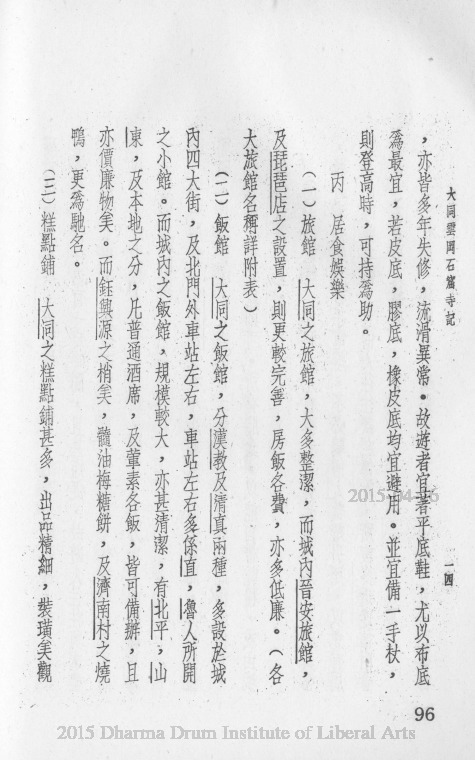 大同雲岡石窟寺記
一四
，亦皆多年失修，流滑異常。故遊者宜著平底鞋，尤以布底
爲最宜，若皮底，膠底，橡皮底均宜避用。並宜備一手杖，
則登高時，可持爲助。
丙　居食娛樂
（一）旅館　大同之旅館，大多整潔，而城內晉安旅館，
及琵琶店之設置，則更較完善，房飯各費，亦多低廉。（各
大旅館名稱詳附表）
（二）飯館　大同之飯館，分漢教及清真兩種，多設於城
內四大街，及北門外車站左右，車站左右多係直，魯人所開
之小館。而城內之飯館，規模較大，亦甚清潔，有北平，山
東，及本地之分，凡普通酒席，及葷素各飯，皆可備辦，且
亦價廉物美。而鈺興源之梢美，髓油梅糖餅，及濟南村之燒
鴨，更爲馳名。
（三）糕點鋪　大同之糕點鋪甚多，出品精細，裝璜美觀
96
2015-04-16
2015 Dharma Drum Institute of Liberal Arts